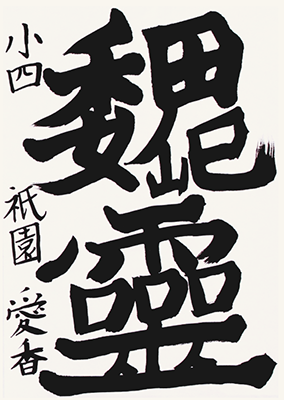 魏靈
小四 祇園 愛香